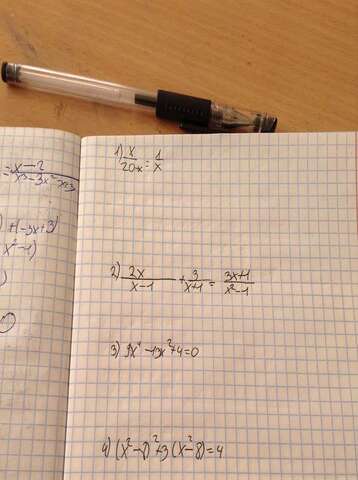 = x-2
x³-3x²-x+3
+(-3x+3)
x²-1)
)
1) x/20-x = 1/x
2) 2x/x-1 + 3/x+1 = 3x+1/x²-1
3) 9x⁴-13x²+4=0
4) (x²-8)²+3(x²-8)=4